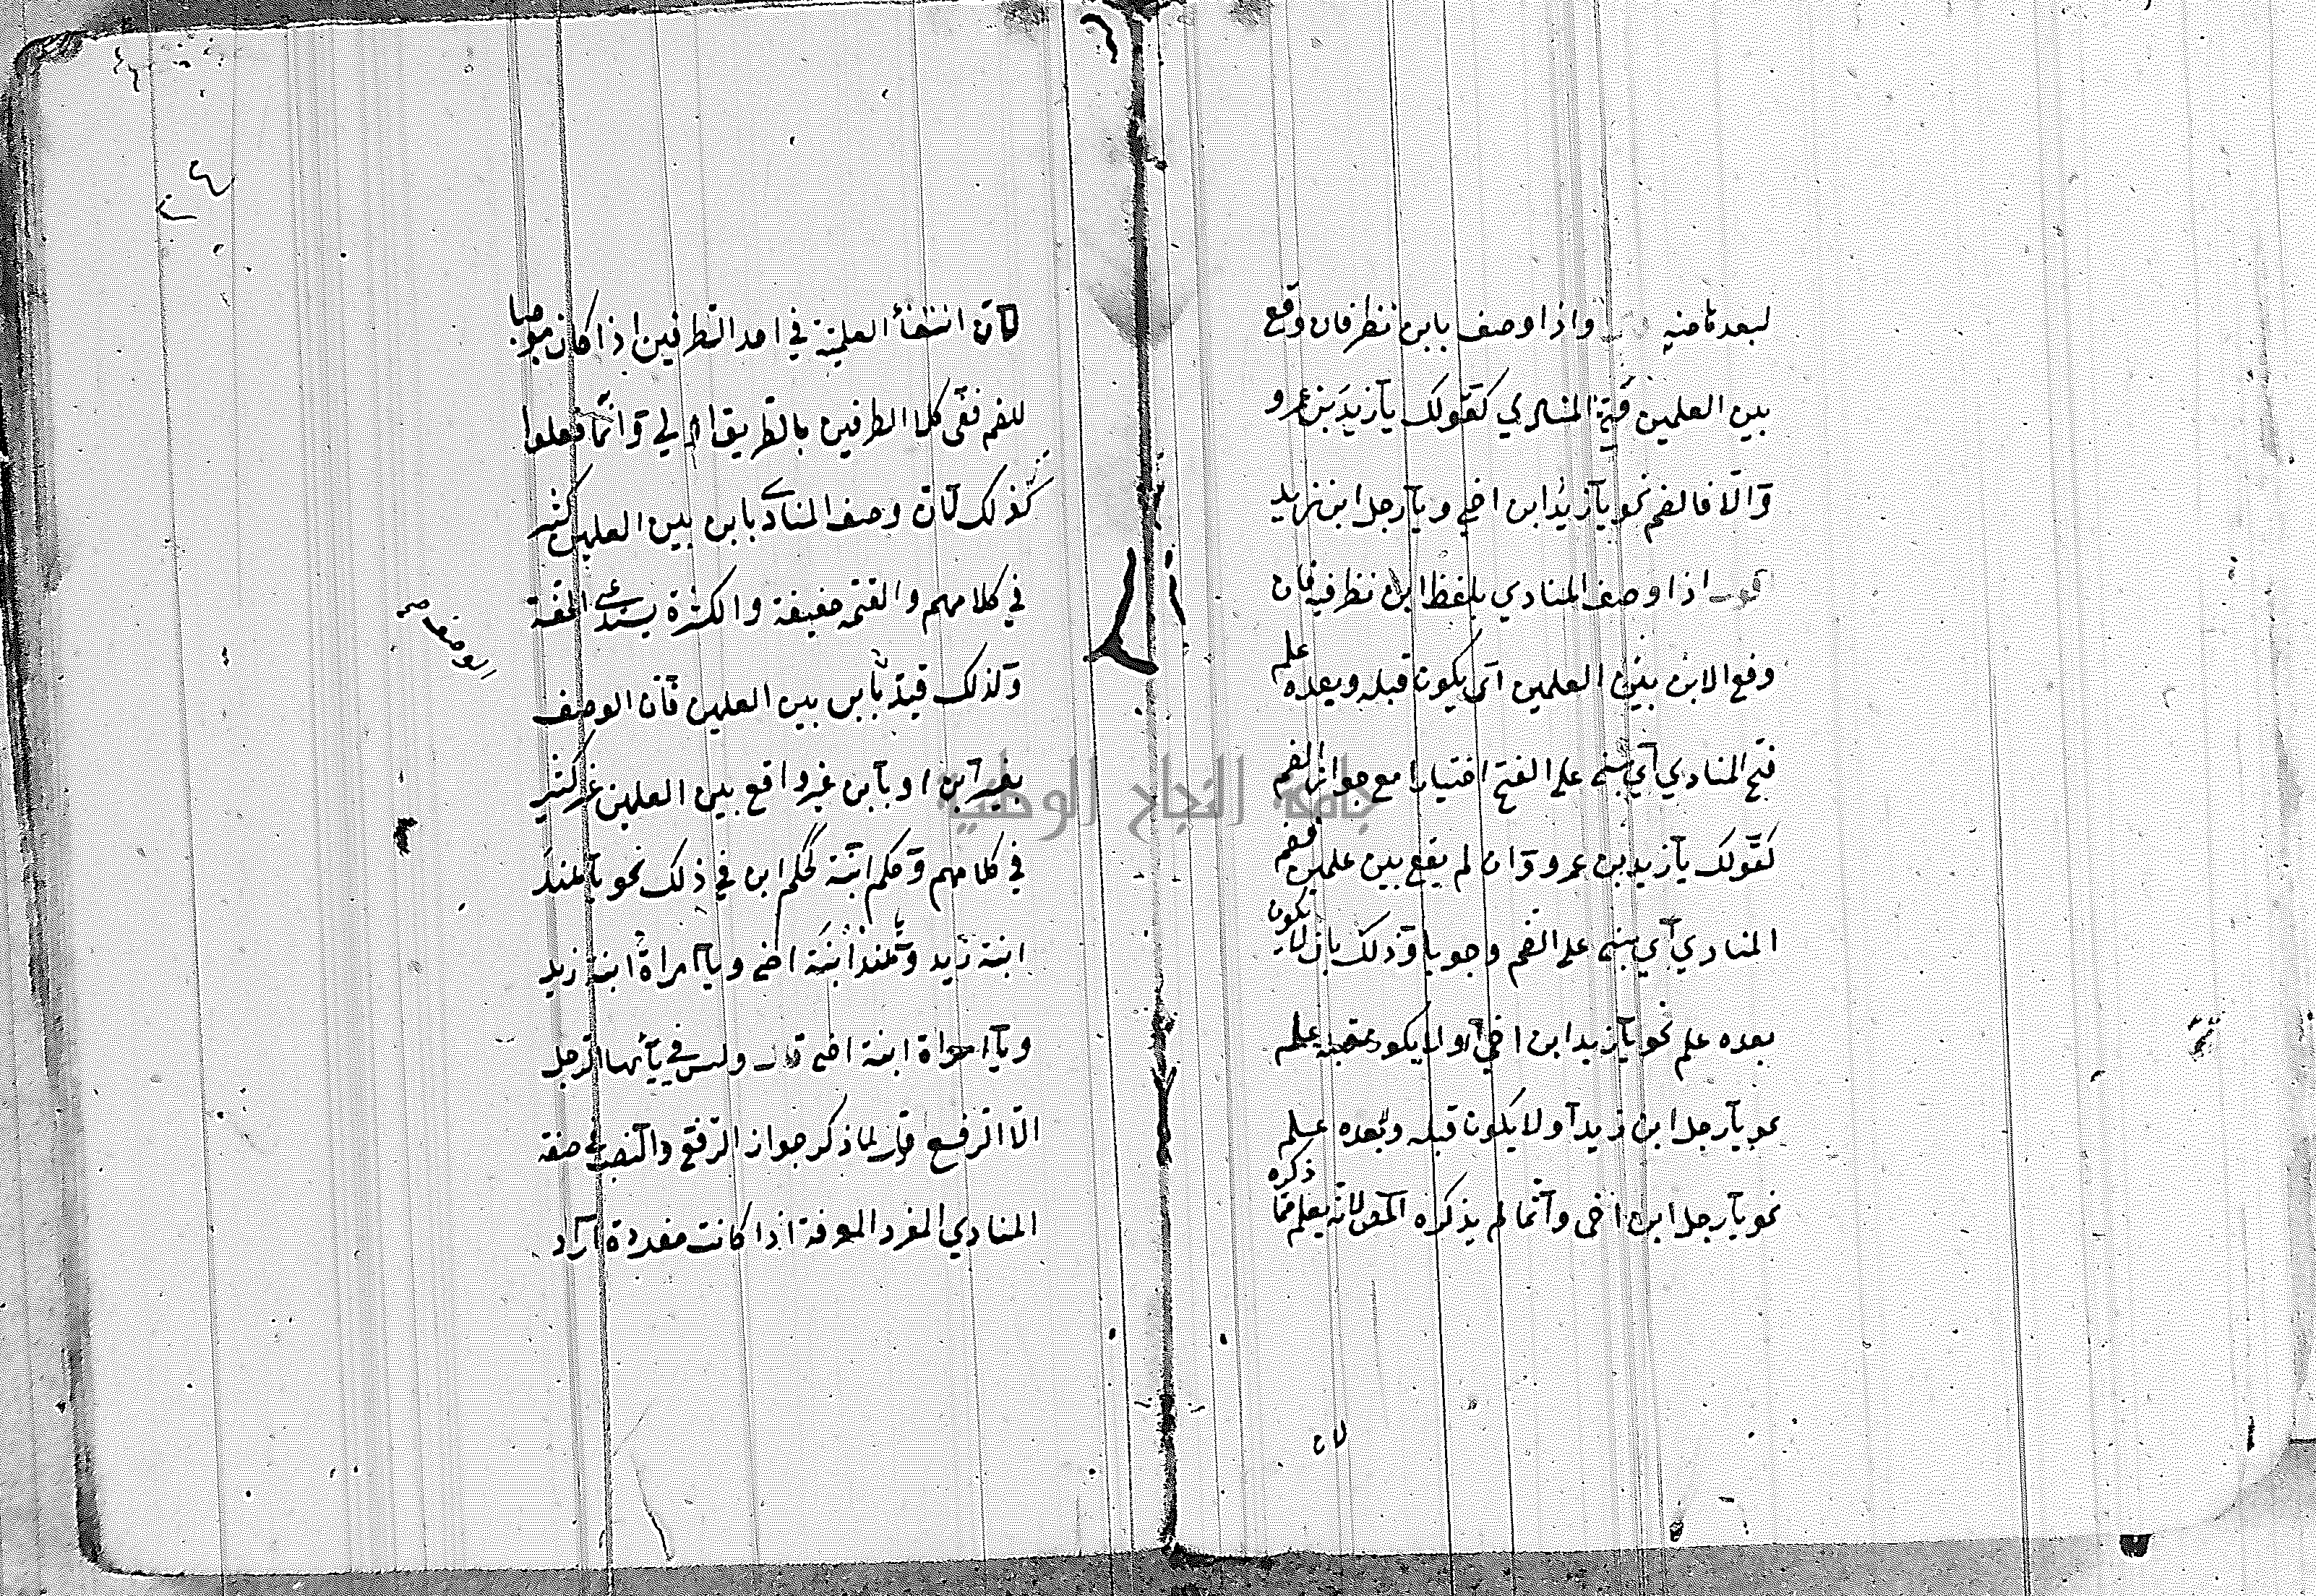 لبعدنا منه واذا وصف بابن نظر فان وقع
بين العلمين فتح المنادي كقولك يا زيد بن عمرو
والا فالضم نحو يا زيد ابن اخي ويا رجل ابن زيد
اذا وصف المنادي بلفظ ابن نظر فيه فان
وقع الابن بين العلمين اي يكون قبله وبعده علم
فتح المنادي اي يبنى على الفتح اختيارا مع جواز الضم
كقولك يا زيد بن عمرو وان لم يقع بين علمين فضم
المنادي اي يبنى على الضم وجوبا وذلك بان لا يكون
بعده علم نحو يا زيد ابن اخي او لا يكون قبله علم
نحو يا رجل ابن زيد او لا يكون قبله وبعده علم
نحو يا رجل ابن اخي وانما لم يذكره المص لانه يعلم مما ذكره
لان
لان انتفاء العلمية في احد الطرفين اذا كان موجبا
للضم ففى كلا الطرفين بالطريق الاولي وانما فعلوا
كذلك لان وصف المنادى بابن بين العلمين كثير
في كلامهم والفتحة خفيفة والكثرة يستدعي الخفة
ولذلك قيد بابن بين العلمين فان الوصف
بغير ابن او بابن غير واقع بين العلمين غير كثير
في كلامهم وحكم ابنة كحكم ابن في ذلك نحو يا هند
ابنة زيد ويا هند ابنة اخي ويا امراة ابنة زيد
ويا امراة ابنة اخي قال وليس في يا ايها الرجل
الا الرفع قول لما ذكر جواز الرفع والنصب في صفة
المنادي المفرد المعرفة اذا كانت مفردة اراد
الوصف
جامعة النجاح الوطنية